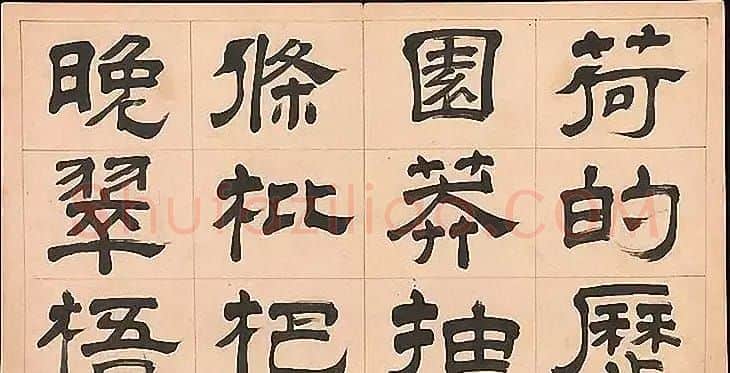 荷的歷
園莽抽
條枇杷
晚翠梧
Shufaziliao.COM